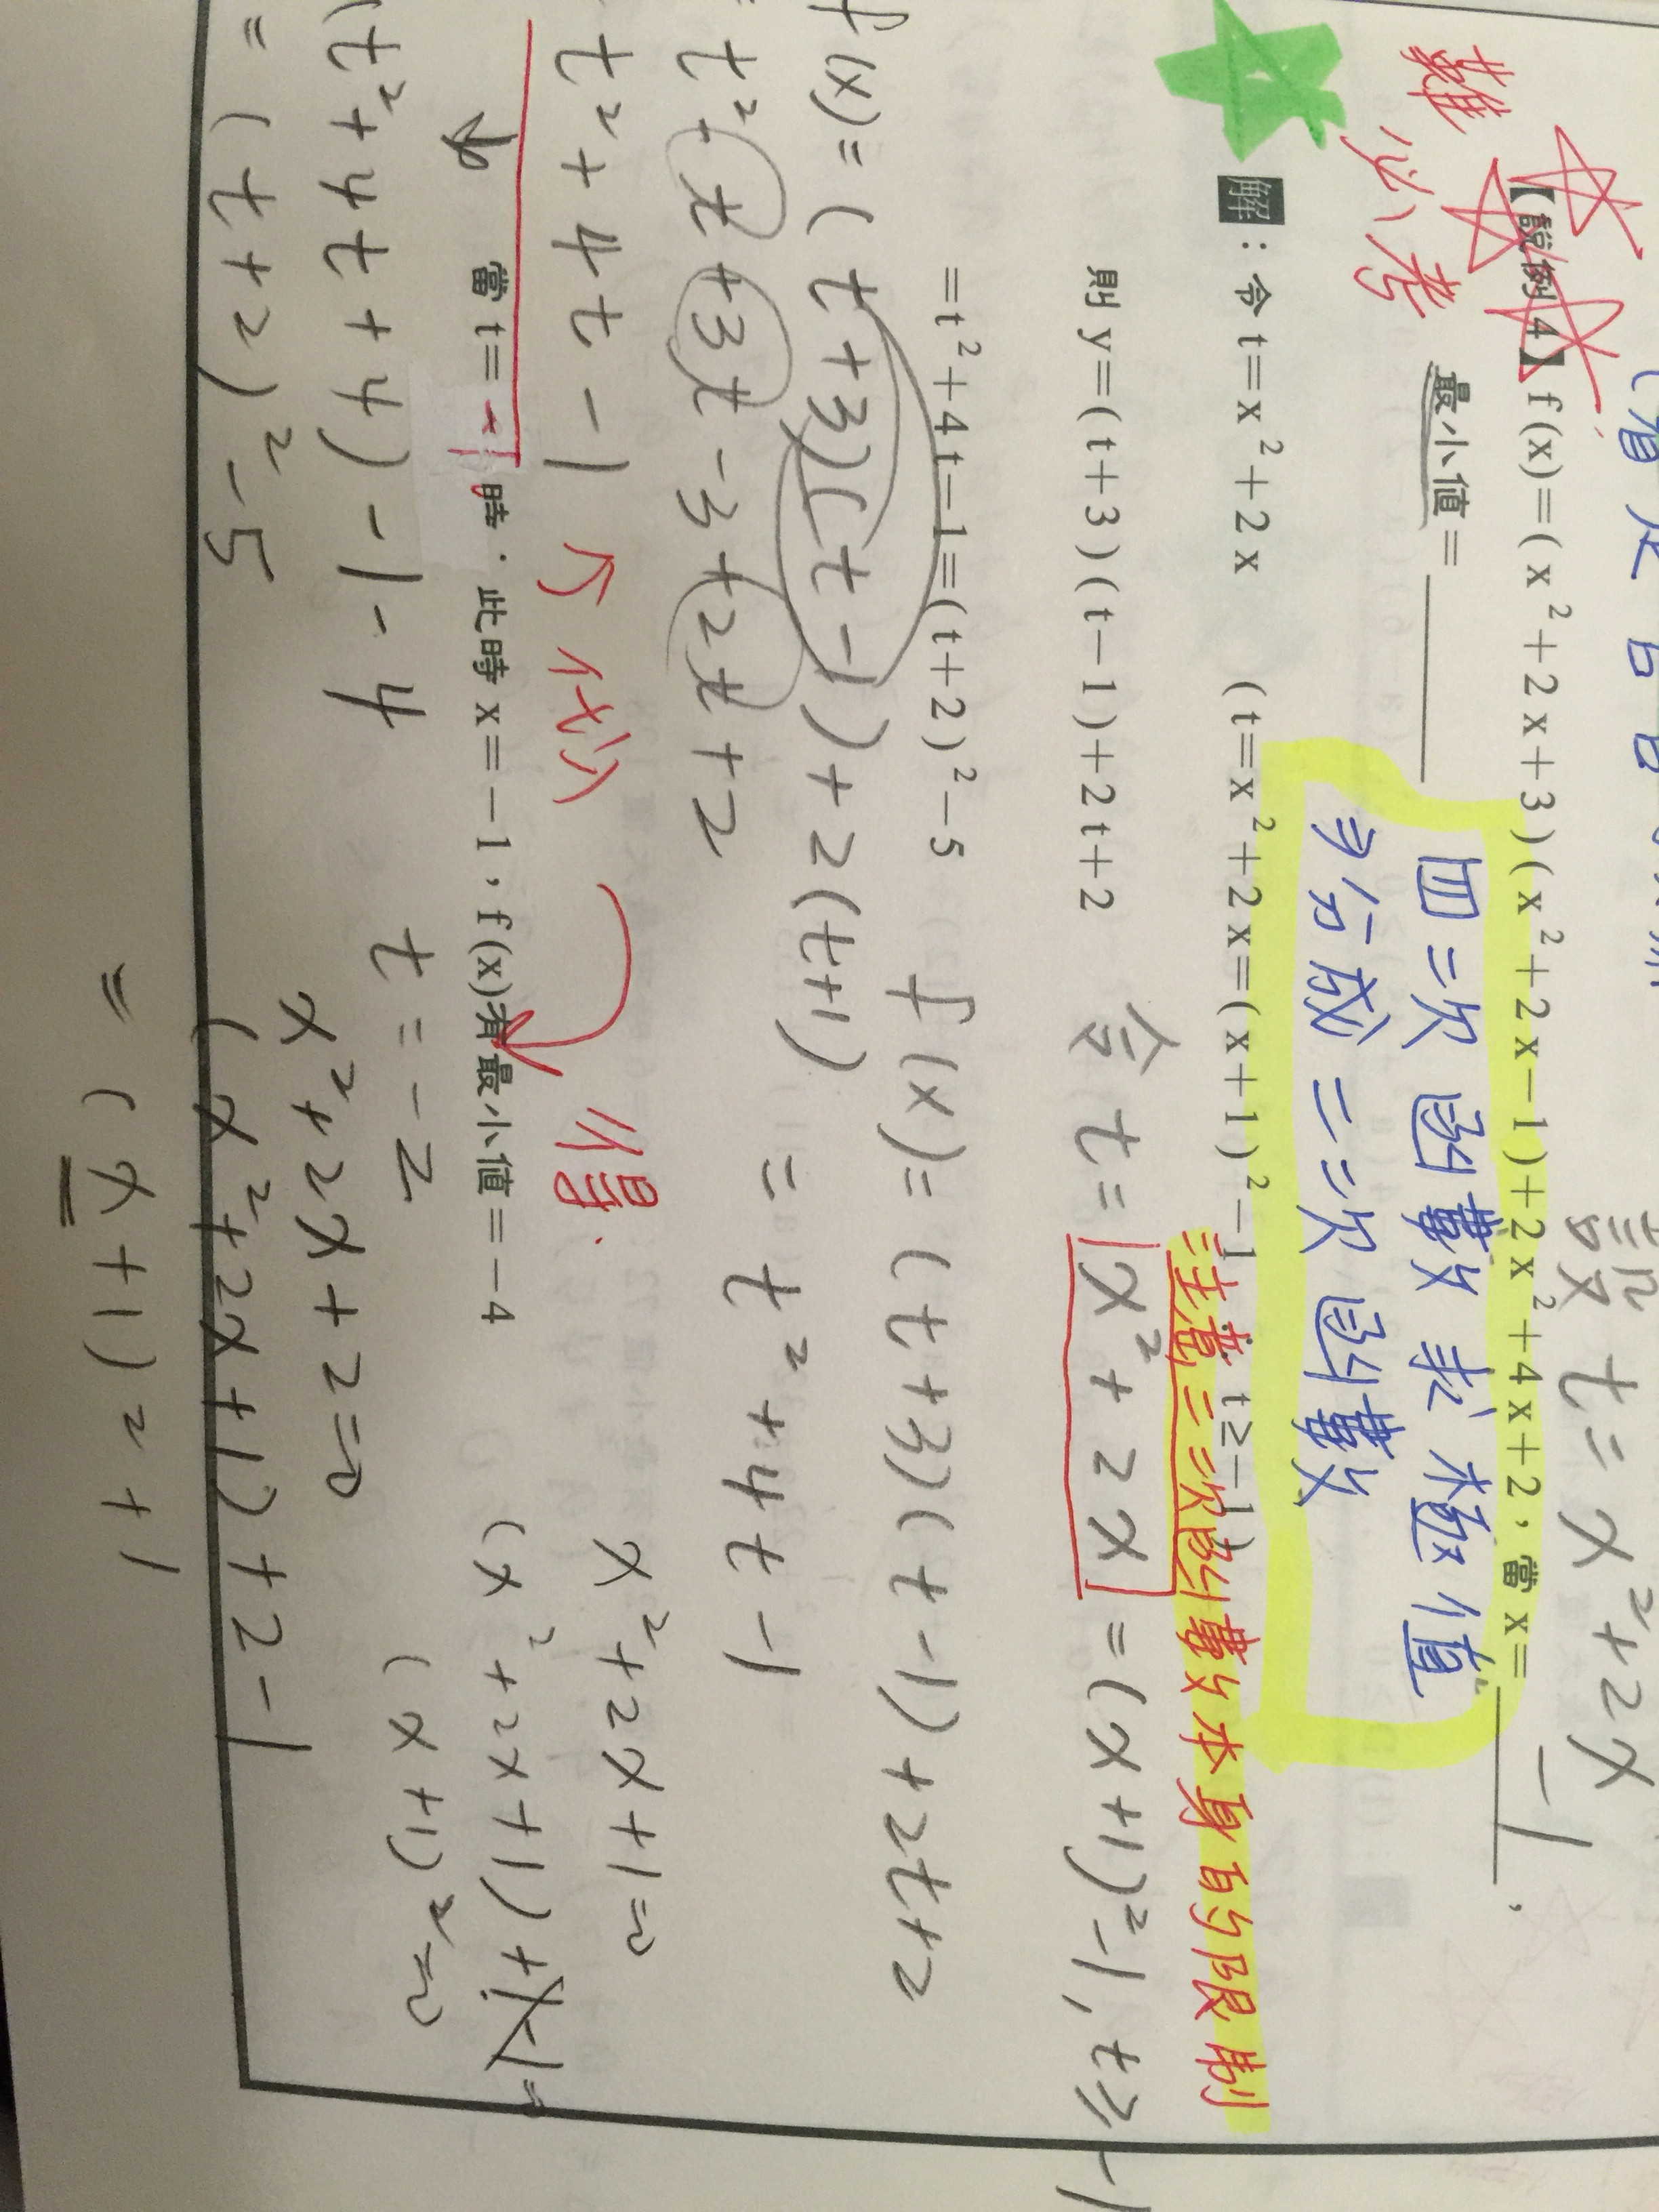 設 t = x²+2x
難 必考
【說例4】f(x)=(x²+2x+3)(x²+2x−1)+2x²+4x+2，當x=−1，
最小值=
四次函數求極值
可分成二次函數
解：令t=x²+2x (t=x²+2x=(x+1)²−1 ∴t≥−1)
注意二次函數本身的限制
則y=(t+3)(t−1)+2t+2
令 t = x²+2x = (x+1)²−1, t≥−1
=t²+4t−1=(t+2)²−5
f(x) = (t+3)(t−1)+2t+2
f(x) = (t+3)(t−1)+2(t+1)
= t²+4t−1
= t²−t+3t−3+2t+2
t²+4t−1
↑代 得
x²+2x+1=0
當t=−1時，此時x=−1，f(x)有最小值=−4
(x²+2x+1)+1−1=0
(t²+4t+4)−1−4
t=−2
(x+1)²=0
x²+2x+2=0
=(t+2)²−5
(x²+2x+1)+2−1
=(x+1)²+1